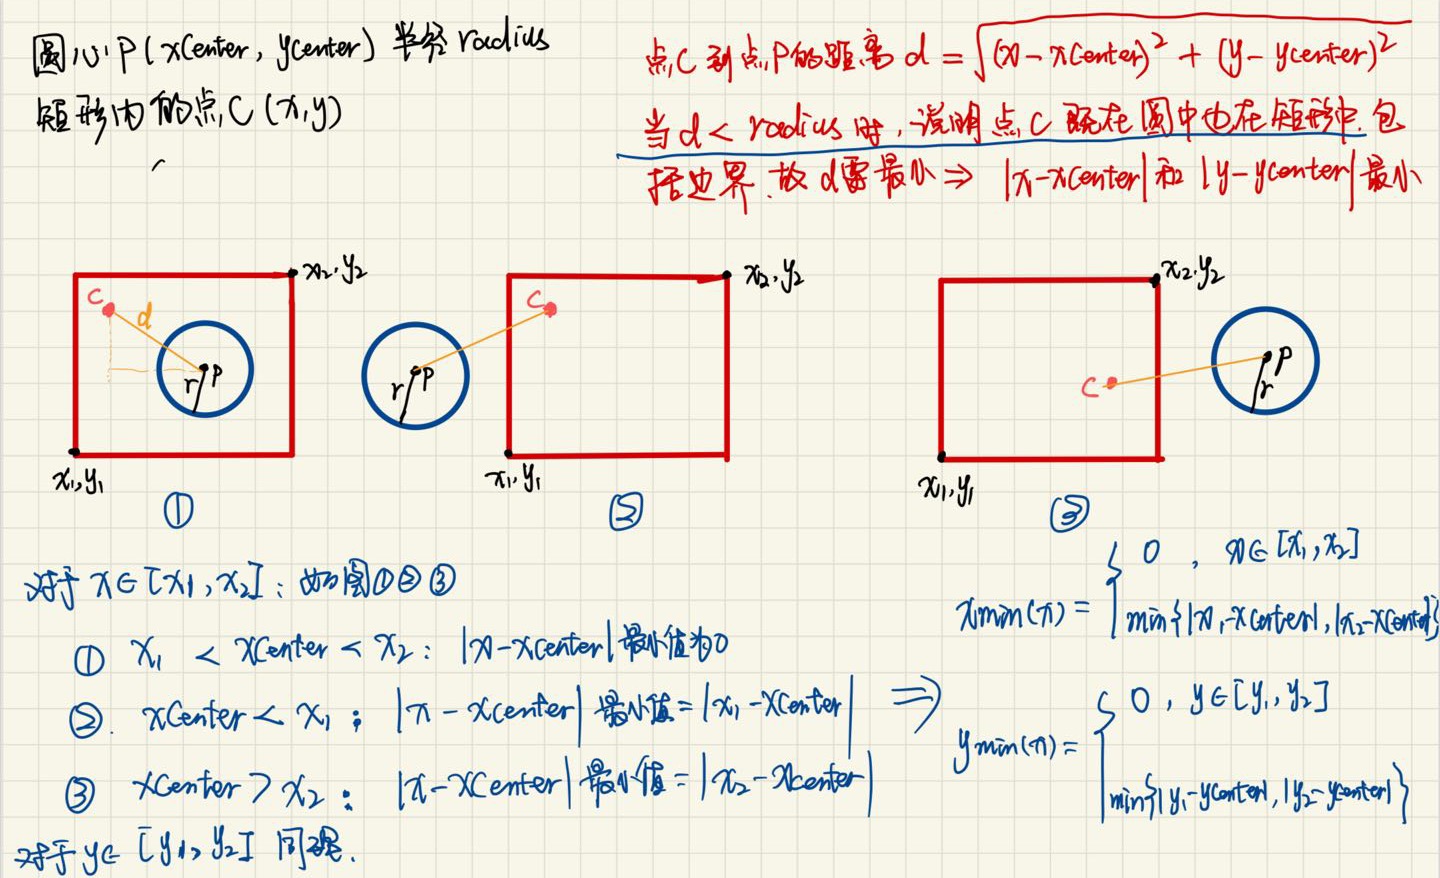 圆心P(xCenter, yCenter) 半径 radius
矩形内的点C(x,y)
点C到点P的距离 d = √(x-xCenter)² + (y-ycenter)²
当d < radius 时,说明点C既在圆中也在矩形中.包
括边界.故d要最小 ⇒ |x-xCenter| 和 |y-ycenter| 最小
C d r P x₂,y₂ x₁,y₁ ①
C r P x₂,y₂ x₁,y₁ ②
C P r x₂,y₂ x₁,y₁ ③
对于 x∈[x₁,x₂]: 如图①②③
① x₁ < xCenter < x₂: |x-xCenter|最小值为0
②. xCenter < x₁: |x-xCenter| 最小值=|x₁-xCenter|
③ xCenter > x₂: |x-xCenter| 最小值=|x₂-xcenter|
对于 y∈[y₁,y₂] 同理.
⇒
xmin(x) = { 0 , x∈[x₁,x₂]
min{|x₁-xCenter|,|x₂-xCenter|}
ymin(x) = { 0 , y∈[y₁,y₂]
min{|y₁-ycenter|,|y₂-ycenter|}